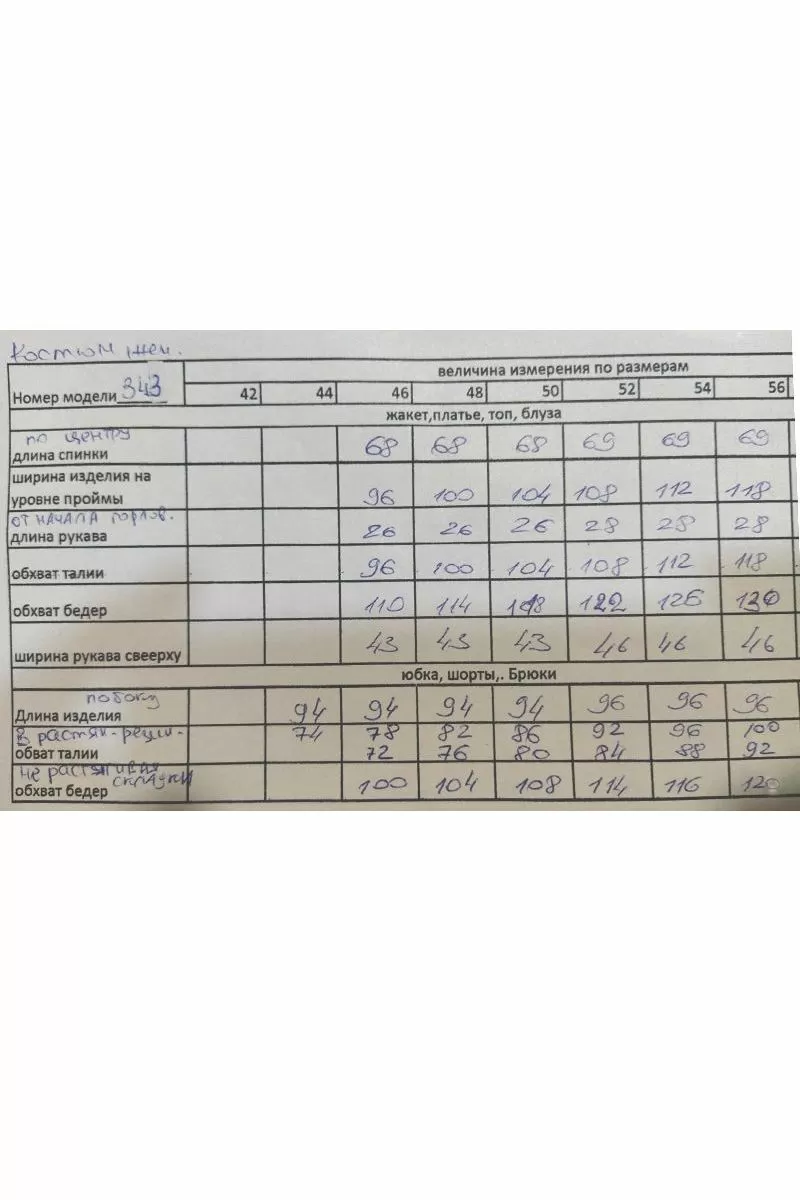 Костюм жен.
Номер модели 343 величина измерения по размерам
42 44 46 48 50 52 54 56
жакет,платье, топ, блуза
по центру
длина спинки 68 68 68 69 69 69
ширина изделия на
уровне проймы 96 100 104 108 112 118
от начала горлов.
длина рукава 26 26 26 28 28 28
обхват талии 96 100 104 108 112 118
обхват бедер 110 114 118 122 126 130
ширина рукава свеерху 43 43 43 46 46 46
юбка, шорты,. Брюки
по боку
Длина изделия 94 94 94 94 96 96 96
В растян-
74 78 82 86 92 96 100
обват талии 72 76 80 84 88 92
не растягивая складки
обхват бедер 100 104 108 114 116 120